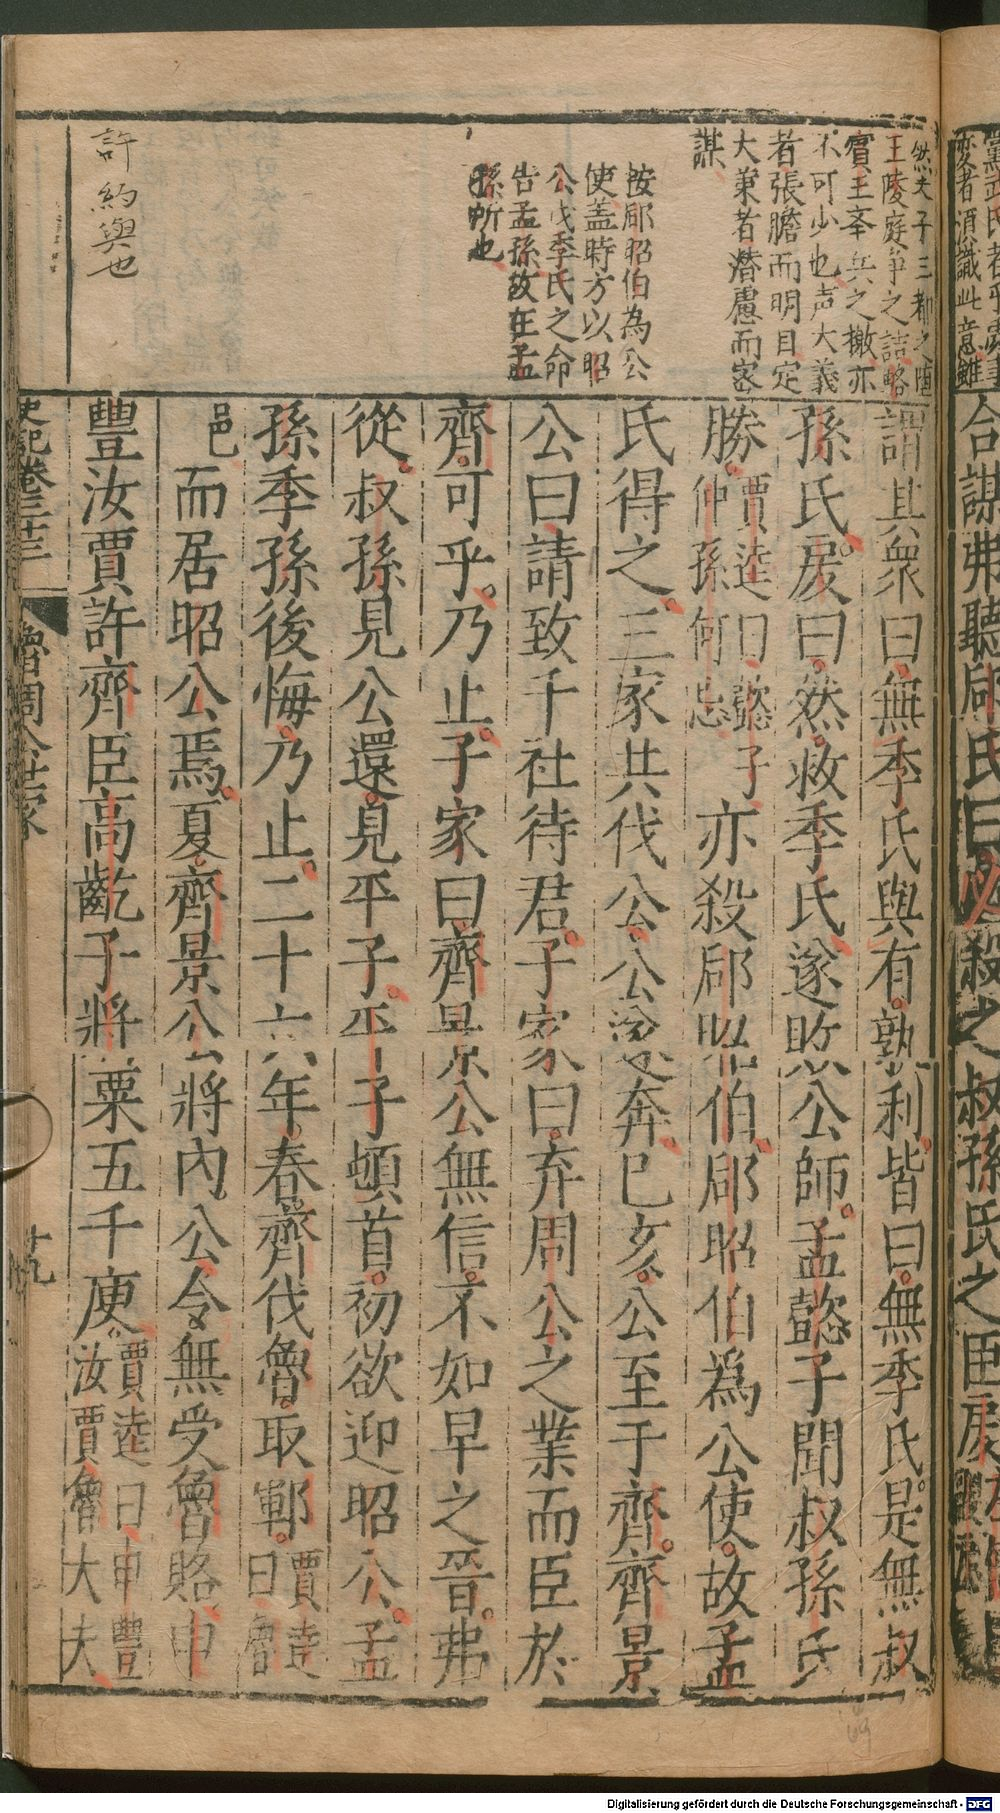 黨武氏者平
變者須識此意雖
合謀弗聽郈氏曰必殺之叔孫氏之臣戾
然夫子三都之墮
王陵庭爭之詰略
賓王奉兵之檄亦
不可少也声大義
者張膽而明目定
大業者潜慮而密
謀
按郈昭伯為公
使盖時方以昭
公戍季氏之命
告孟孫故在孟
孫所也
許約與也
謂其衆曰無季氏與有孰利皆曰無季氏是無叔
孫氏戾曰然救季氏遂敗公師孟懿子聞叔孫氏
勝賈逵曰懿子仲孫何忌亦殺郈昭伯郈昭伯為公使故孟
氏得之三家共伐公公遂奔己亥公至于齊齊景
公曰請致千社待君子家曰弃周公之業而臣於
齊可乎乃止子家曰齊景公無信不如早之晉弗
從叔孫見公還見平子平子頓首初欲迎昭公孟
孫季孫後悔乃止二十六年春齊伐魯取鄆賈逵曰魯
邑而居昭公焉夏齊景公將內公令無受魯賂申
豐汝賈許齊臣高齕子將粟五千庾賈逵曰申豐汝賈魯大夫
史記卷三十三
魯周公世家
十九
69
Digitalisierung gefördert durch die Deutsche Forschungsgemeinschaft - DFG